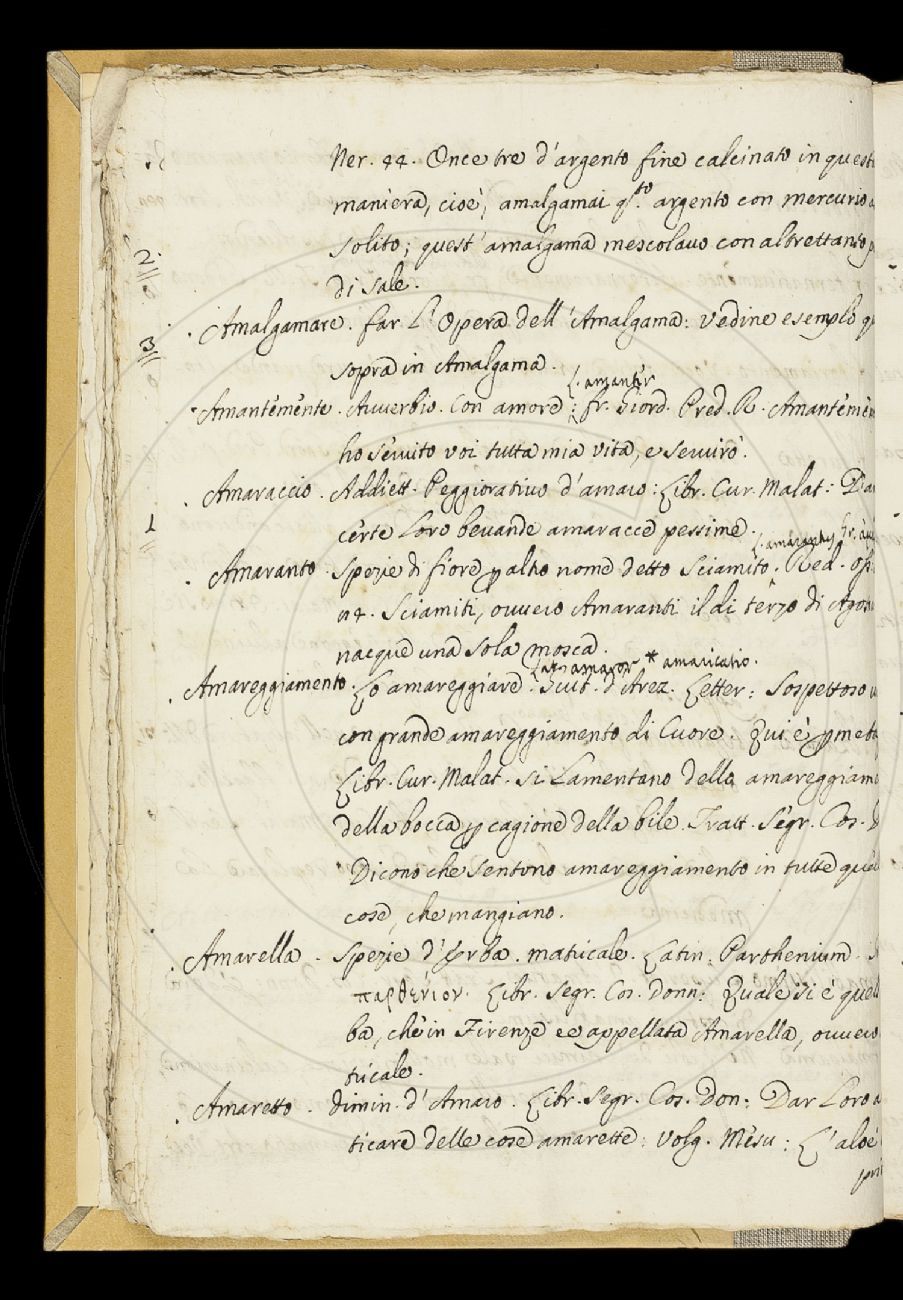 Ner. 44. Once tre d'argento fine calcinato in quest
maniera, cioè, amalgamai q.to argento con mercurio
2.
solito; quest'amalgama mescolavo con altrettanto
di sale.
Amalgamare. far L'Opera dell'Amalgama: Vedine esemplo
3
sopra in Amalgama.
L. amanter
Amantemente. Avverbio. Con amore: fr. Giord. Pred. R. Amanteme
ho servito voi tutta mia vita, e servirò.
Amaraccio. Addiett. Peggiorativo d'amaro: Libr. Cur. Malat: Da
1
certe loro bevande amaracce pessime.
L. amaranthus
Amaranto. Spezie di fiore p altro nome detto Sciamito. Red.
Sciamiti, ovvero Amaranti il di terzo di Agos
nacque una sola mosca.
amaror * amaricatio.
Amareggiamento. Lo amareggiare. Guit. d'Arez. Letter: Sospettoso
con grande amareggiamento di Cuore. Qui è p meta
Libr. Cur. Malat. si Lamentano dello amareggiam
della bocca p cagione della bile. Tratt. Segr. Cos.
Dicono che sentono amareggiamento in tutte quel
cose, che mangiano.
Amarella. Spezie d'Erba. matricale. Latin. Parthenium.
παρθένιον. Libr. Segr. Cos. Donn: Quale si è quell
ba, che in Firenze ee appellata Amarella, ovvero
tricale.
Amaretto. dimin. d'Amaro. Libr. Segr. Cos. Don: Dar Loro a
ticare delle cose amarette: Volg. Mesu: L'aloè